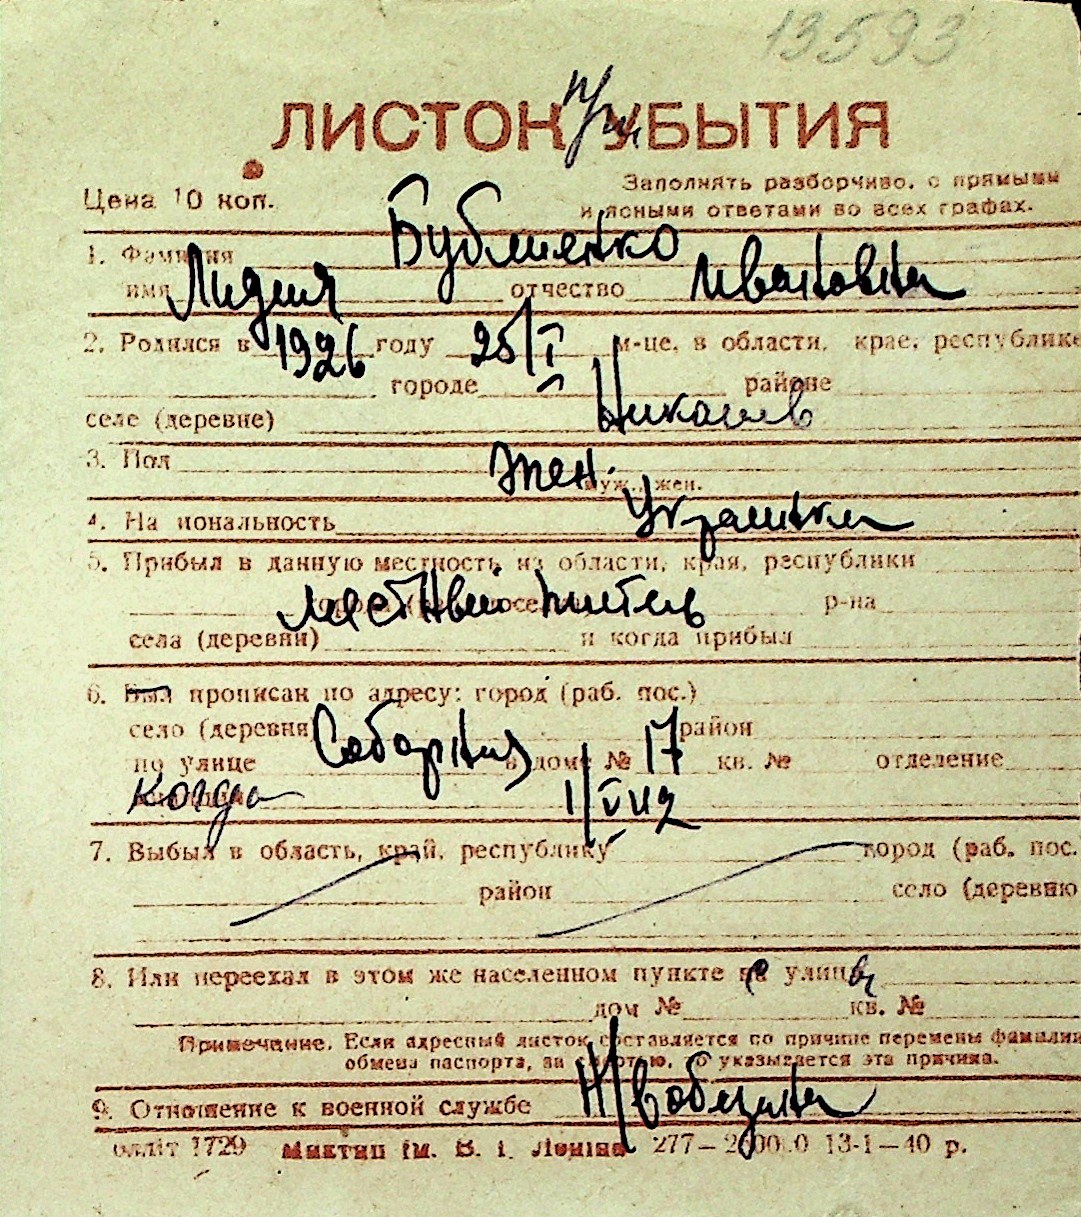 13593
ЛИСТОК при УБЫТИЯ
Цена 10 коп.
Заполнять разборчиво, с прямыми
и ясными ответами во всех графах.
1. Фамилия Бублиенко
имя Лидия отчество Ивановна
2. Родился в 1926 году 25/I м-це, в области, крае, республике
городе районе
селе (деревне) Николаев
3. Пол жен.
муж., жен.
4. Национальность Украинка
5. Прибыл в данную местность из области, края, республики
местный житель р-на
села (деревни) и когда прибыл
6. Был прописан по адресу: город (раб. пос.)
село (деревня) район
по улице Соборная в доме № 17 кв. № отделение
когда 1/VII 42
7. Выбыл в область, край, республику город (раб. пос.
район село (деревню
8. Или переехал в этом же населенном пункте улицы
дом № кв. №
Примечание. Если адресный листок составляется по причине перемены фамилии
обмена паспорта, за смертью, то указывается эта причина.
9. Отношение к военной службе Н/вобязана
обліт 1729 Миктип ім. В. І. Леніна 277— 13-1—40 р.